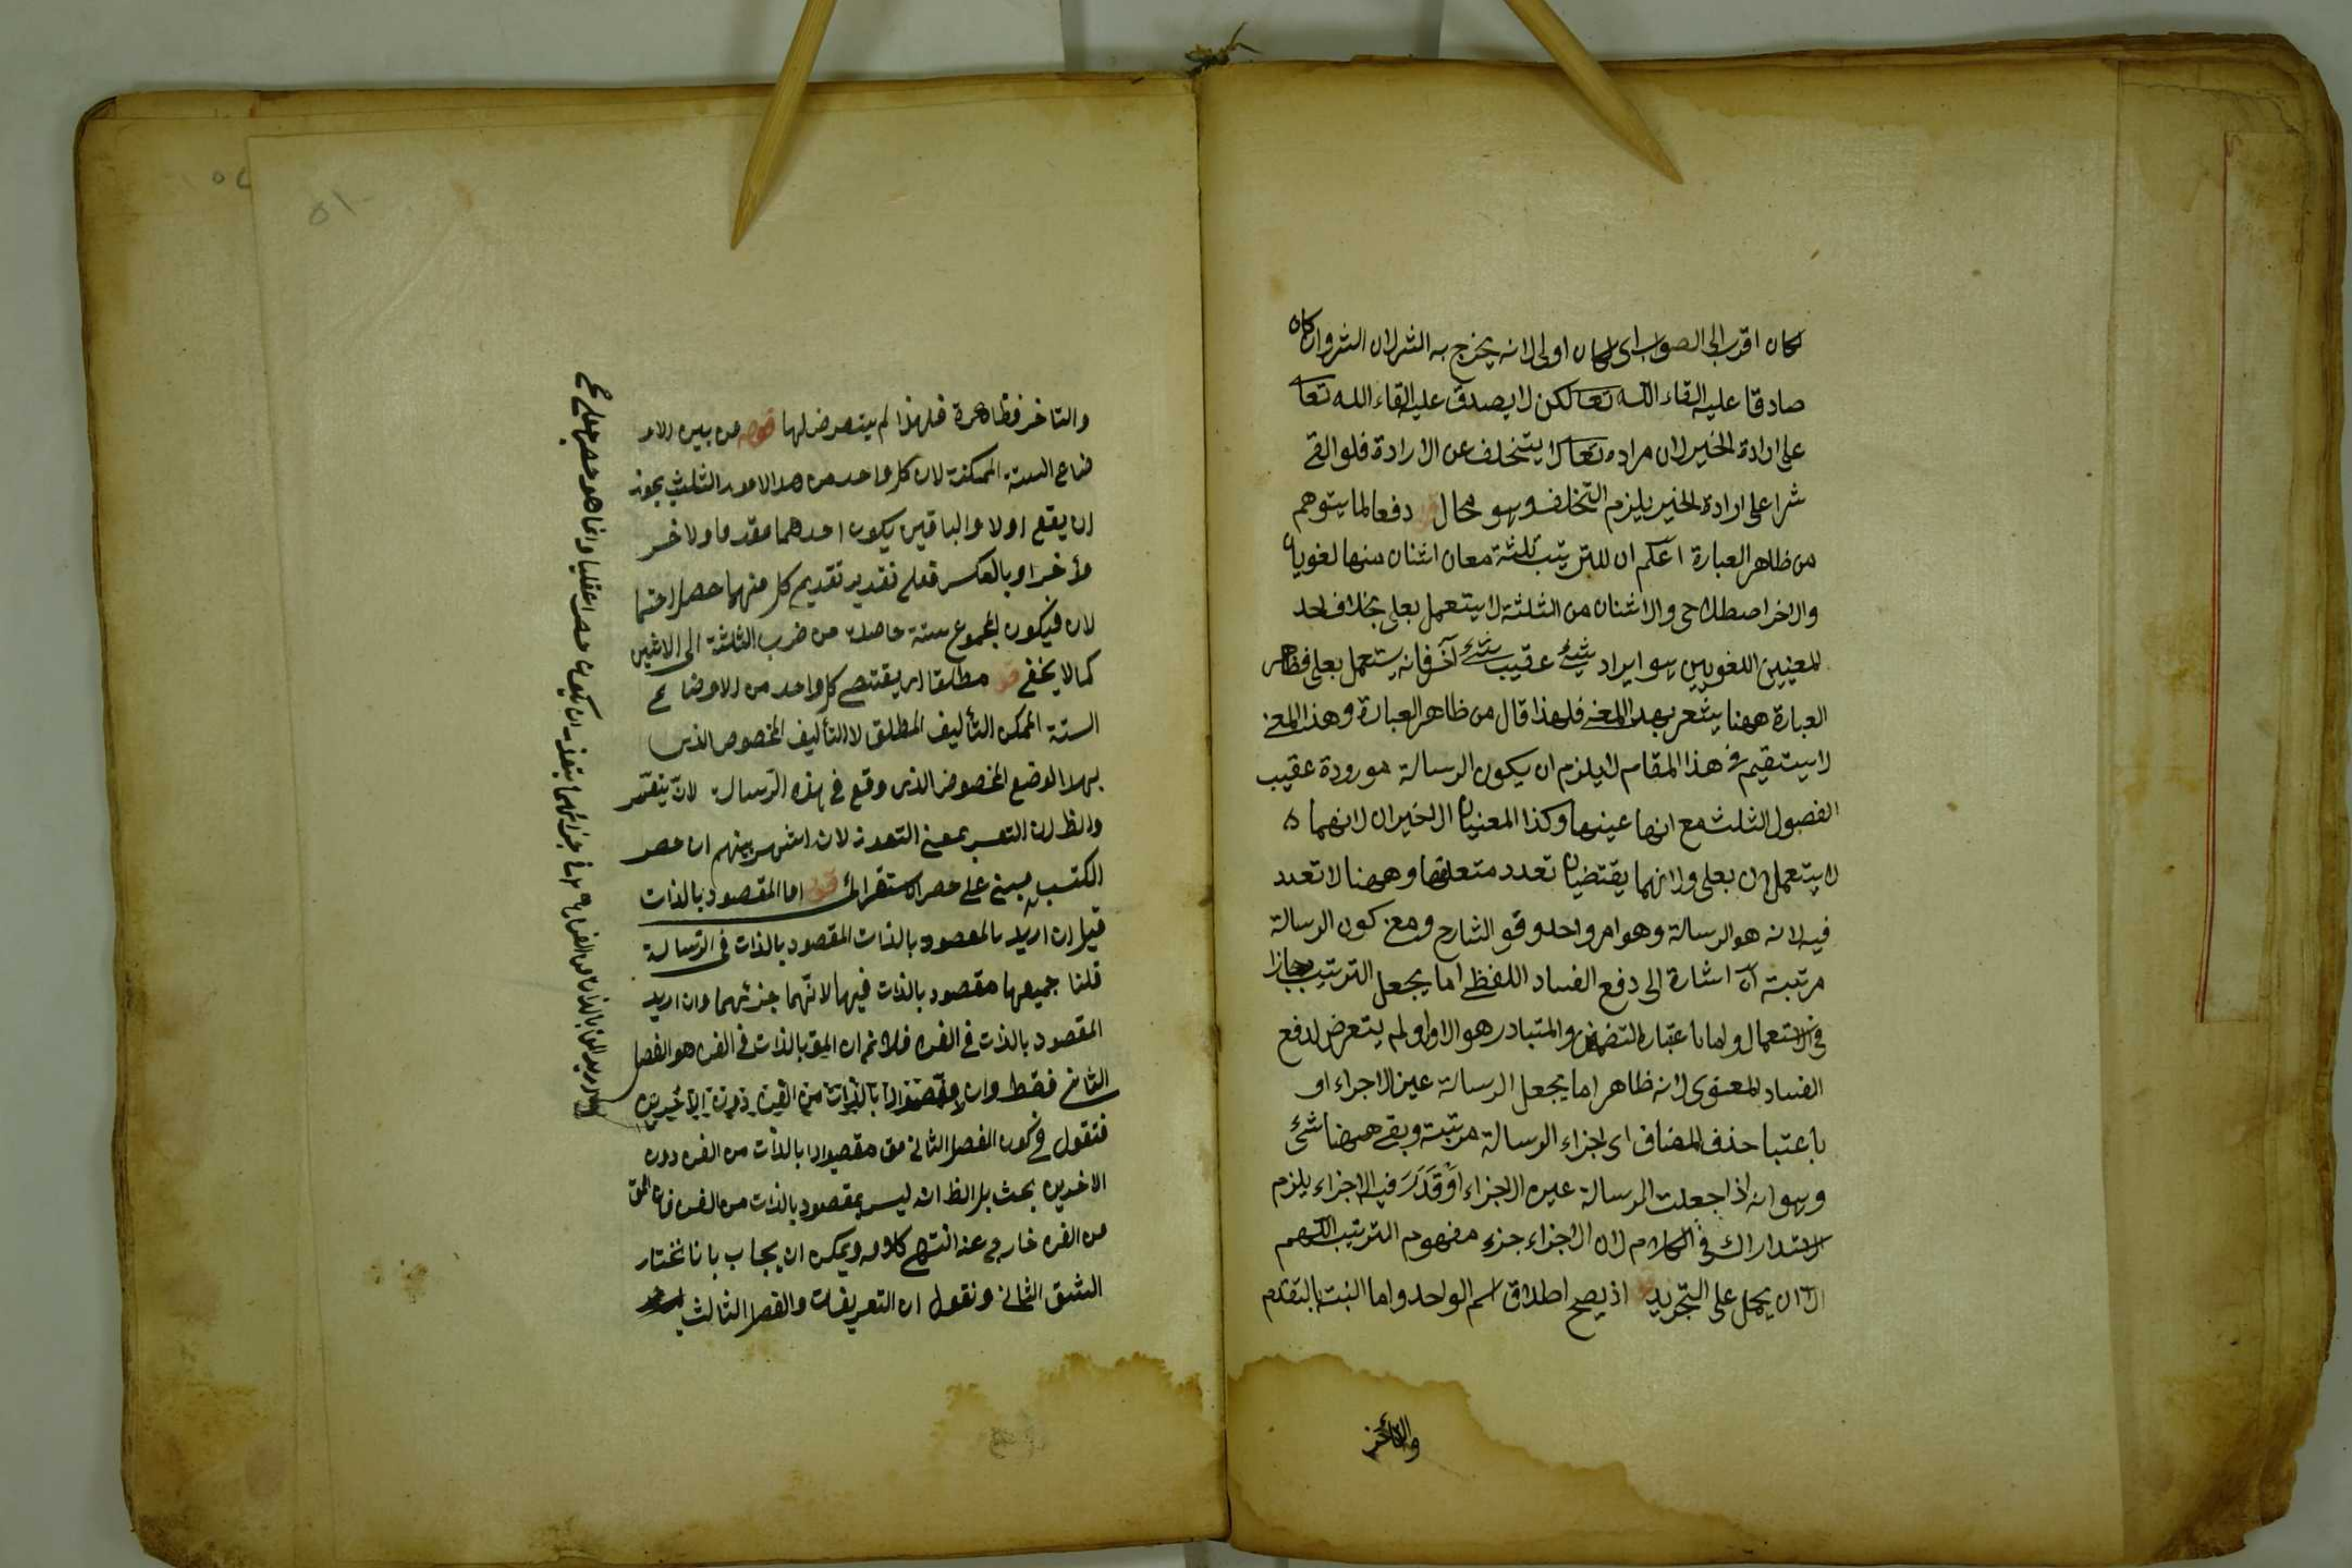 لكان اقرب الى الصواب اى لكان اولى لانه يخرج به الشر لان الشر وان كان
صادقا عليه القاء الله تعا لكن لا يصدق عليه القاء الله تعا
على ارادة الخير لان مراده تعا لا يتخلف عن الارادة فلو القى
شرا على ارادة الخير يلزم التخلف وهو محال دفعا لما يتوهم
من ظاهر العبارة اعلم ان للترتيب ثلثة معان اثنان منها لغويان
والاخر اصطلاحى والاثنان من الثلثة لا يستعمل بعلى بخلاف احد
المعنيين اللغويين هو ايراد شئ عقيب شئ آخر فانه يستعمل بعلى فظاهر
العبارة ههنا يشعر بهذا المعنى فلهذا قال من ظاهر العبارة وهذا المعنى
لا يستقيم فى هذا المقام لا يلزم ان يكون الرسالة مورودة عقيب
الفصول الثلث مع انها عينها وكذا المعنيان الاخيران لانهما
لا يستعملان بعلى ولانهما يقتضيان تعدد متعلقها وههنا لا تعدد
فيه لانه هو الرسالة وهو امر واحد وقو الشارح ومعنى كون الرسالة
مرتبة آه اشارة الى دفع الفساد اللفظى اما بجعل الترتيب مجازا
فى الاستعمال واما باعتبار التضمين والمتبادر هو الاول ولم يتعرض لدفع
الفساد المعنوى لانه ظاهر اما بجعل الرسالة عين الاجزاء او
باعتبا حذف المضاف اى اجزاء الرسالة مرتبة وبقى ههنا شئ
وهو انه اذا جعلت الرسالة عين الاجزاء او قدر فيه الاجزاء يلزم
الاستدراك فى الكلام لان الاجزاء جزء مفهوم الترتيب اللهم
الا ان يحمل على التجريد اذ يصح اطلاق اسم الواحد واما النسبة بالتقدم
والتأخر
والتاخر فظاهرة فلهذا لم يتعرض لها قوله من بين الاو
ضاع الستة الممكنة لان كل واحد من هذا الامور الثلث يجوز
ان يقع اولا والباقيين يكون احدهما مقدما والاخر
مؤخرا وبالعكس فعلى تقدير تقديم كل منهما حصل احتما
لان فيكون المجموع ستة حاصلة من ضرب الثلثة الى الاثنين
كما لا يخفى قو مطلقا اى يقتضى كل واحد من الاوضاع
الستة الممكن التأليف المطلق لا التأليف المخصوص الذى
بهذا الوضع المخصوص الذى وقع فى هذه الرسالة
والظ ان التعسر بمعنى التعذر لان اشهر بينهم ان حصر
الكتب مبنى على حصر استقرائى قو اما المقصود بالذات
قيل ان اريد بالمقصود بالذات المقصود بالذات فى الرسالة
قلنا جميعها مقصود بالذات فيها لانهما جزئهما وان اريد
المقصود بالذات فى الفن فلا نم ان المق بالذات فى الفن هو الفصل
الثانى فقط وان
فنقول فى كون الفصل الثانى مق مقصودا بالذات من الفن دون
الاخيرين بحث بل الظ انه ليس بمقصود بالذات من الفن فان المق
من الفن خارج عنه انتهى كلامه ويمكن ان يجاب بانا نختار
الشق الثانى ونقول ان التعريفات والفصل الثالث